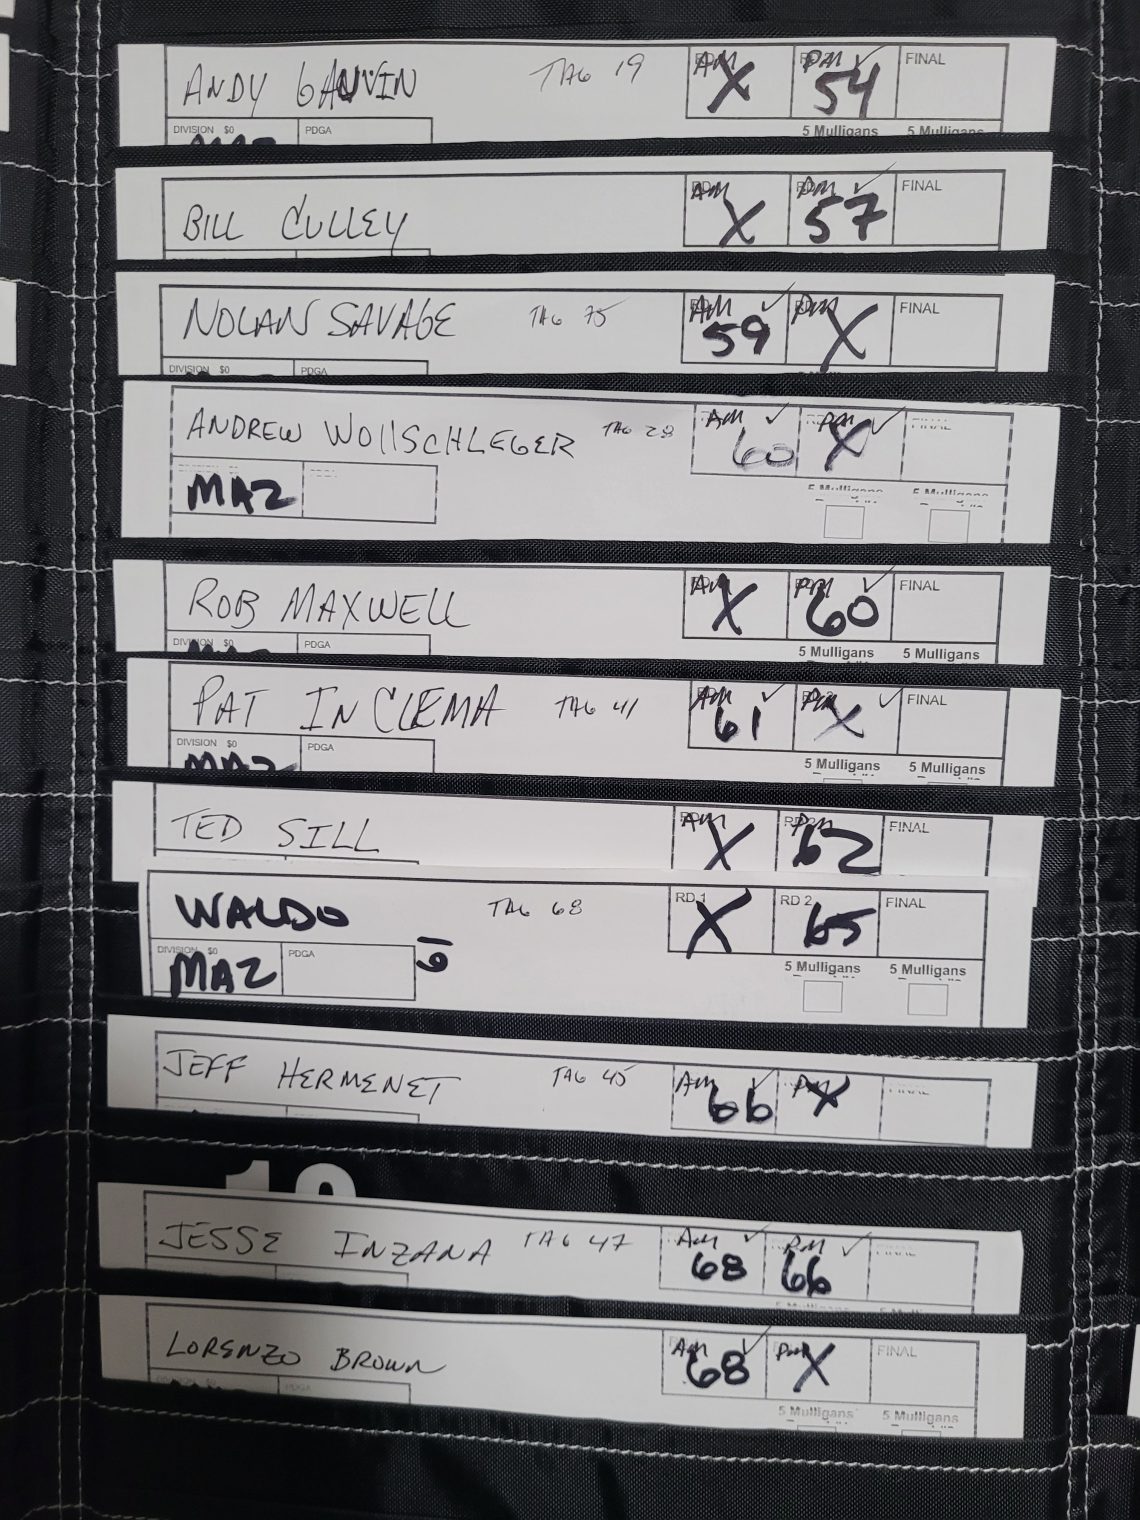 ANDY GANVIN TAG 19 AM X PM ✓ 54 FINAL
DIVISION $0 PDGA 5 Mulligans 5 Mulligans
MA2
BILL CULLEY AM X PM ✓ 57 FINAL
NOLAN SAVAGE TAG 75 AM ✓ 59 PM X FINAL
DIVISION $0 PDGA
ANDREW WOllSCHLEGER TAG 28 AM ✓ 60 PM ✓ X FINAL
MA2 5 Mulligans 5 Mulligans
ROB MAXWELL AM X PM ✓ 60 FINAL
DIVISION $0 PDGA 5 Mulligans 5 Mulligans
PAT INCLEMA TAG 41 AM ✓ 61 PM ✓ X FINAL
DIVISION $0 PDGA 5 Mulligans 5 Mulligans
MA2
TED SILL AM X RD 2 PM 62 FINAL
WALDO TAG 68 RD 1 X RD 2 65 FINAL
DIVISION $0 PDGA 61 5 Mulligans 5 Mulligans
MA2
JEFF HERMENET TAG 45 AM ✓ 66 PM X FINAL
JESSE INZANA TAG 47 AM ✓ 68 PM ✓ 66 FINAL
LORENZO BROWN AM ✓ 68 PM X FINAL
5 Mulligans 5 Mulligans